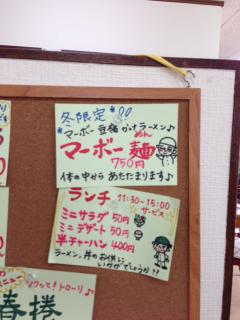 冬限定
マーボー豆腐かけラーメン♪
めん
マーボー麺
750円
体の中からあたたまります♪
ランチ 11:30-15:00
サービス
ミニサラダ 50円
ミニデザート 50円
半チャーハン 400円
ラーメン、丼のお供に
いかがでしょうか??
パリッと!トローリ♪
春捲